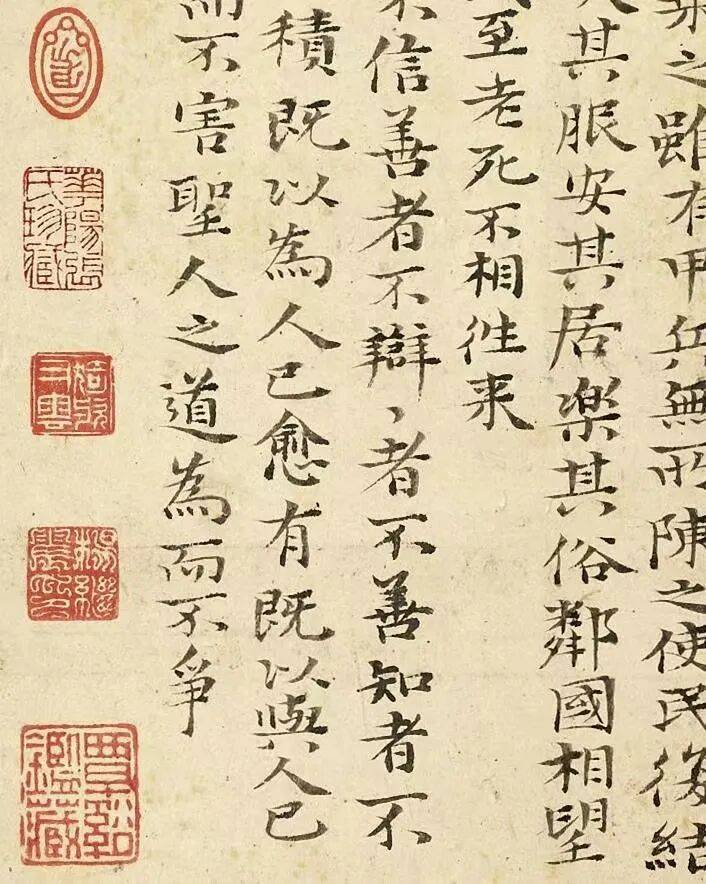 之雖有甲兵無所陳之使民復結
其服安其居樂其俗鄰國相望
至老死不相往来
不信善者不辯、者不善知者不
積既以為人已愈有既以與人已
而不害聖人之道為而不爭
華陽張氏珍藏